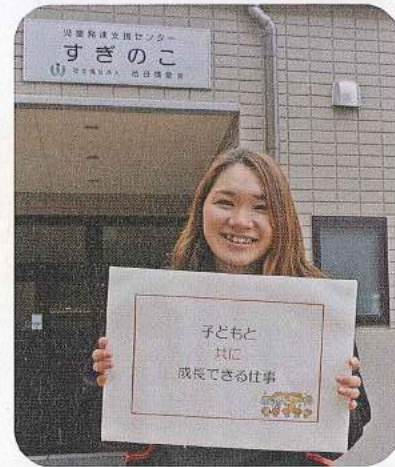 児童発達支援センター
すぎのこ
社会福祉法人
子どもと
共に
成長できる仕事